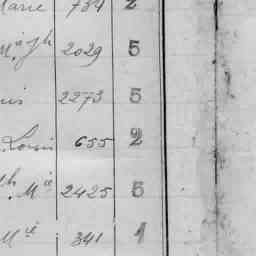 Marie 734 2
M.ie Jh 2029 5
uis 2273 5
Louis 655 2
h. M.ie 2425 5
M.ie 341 1